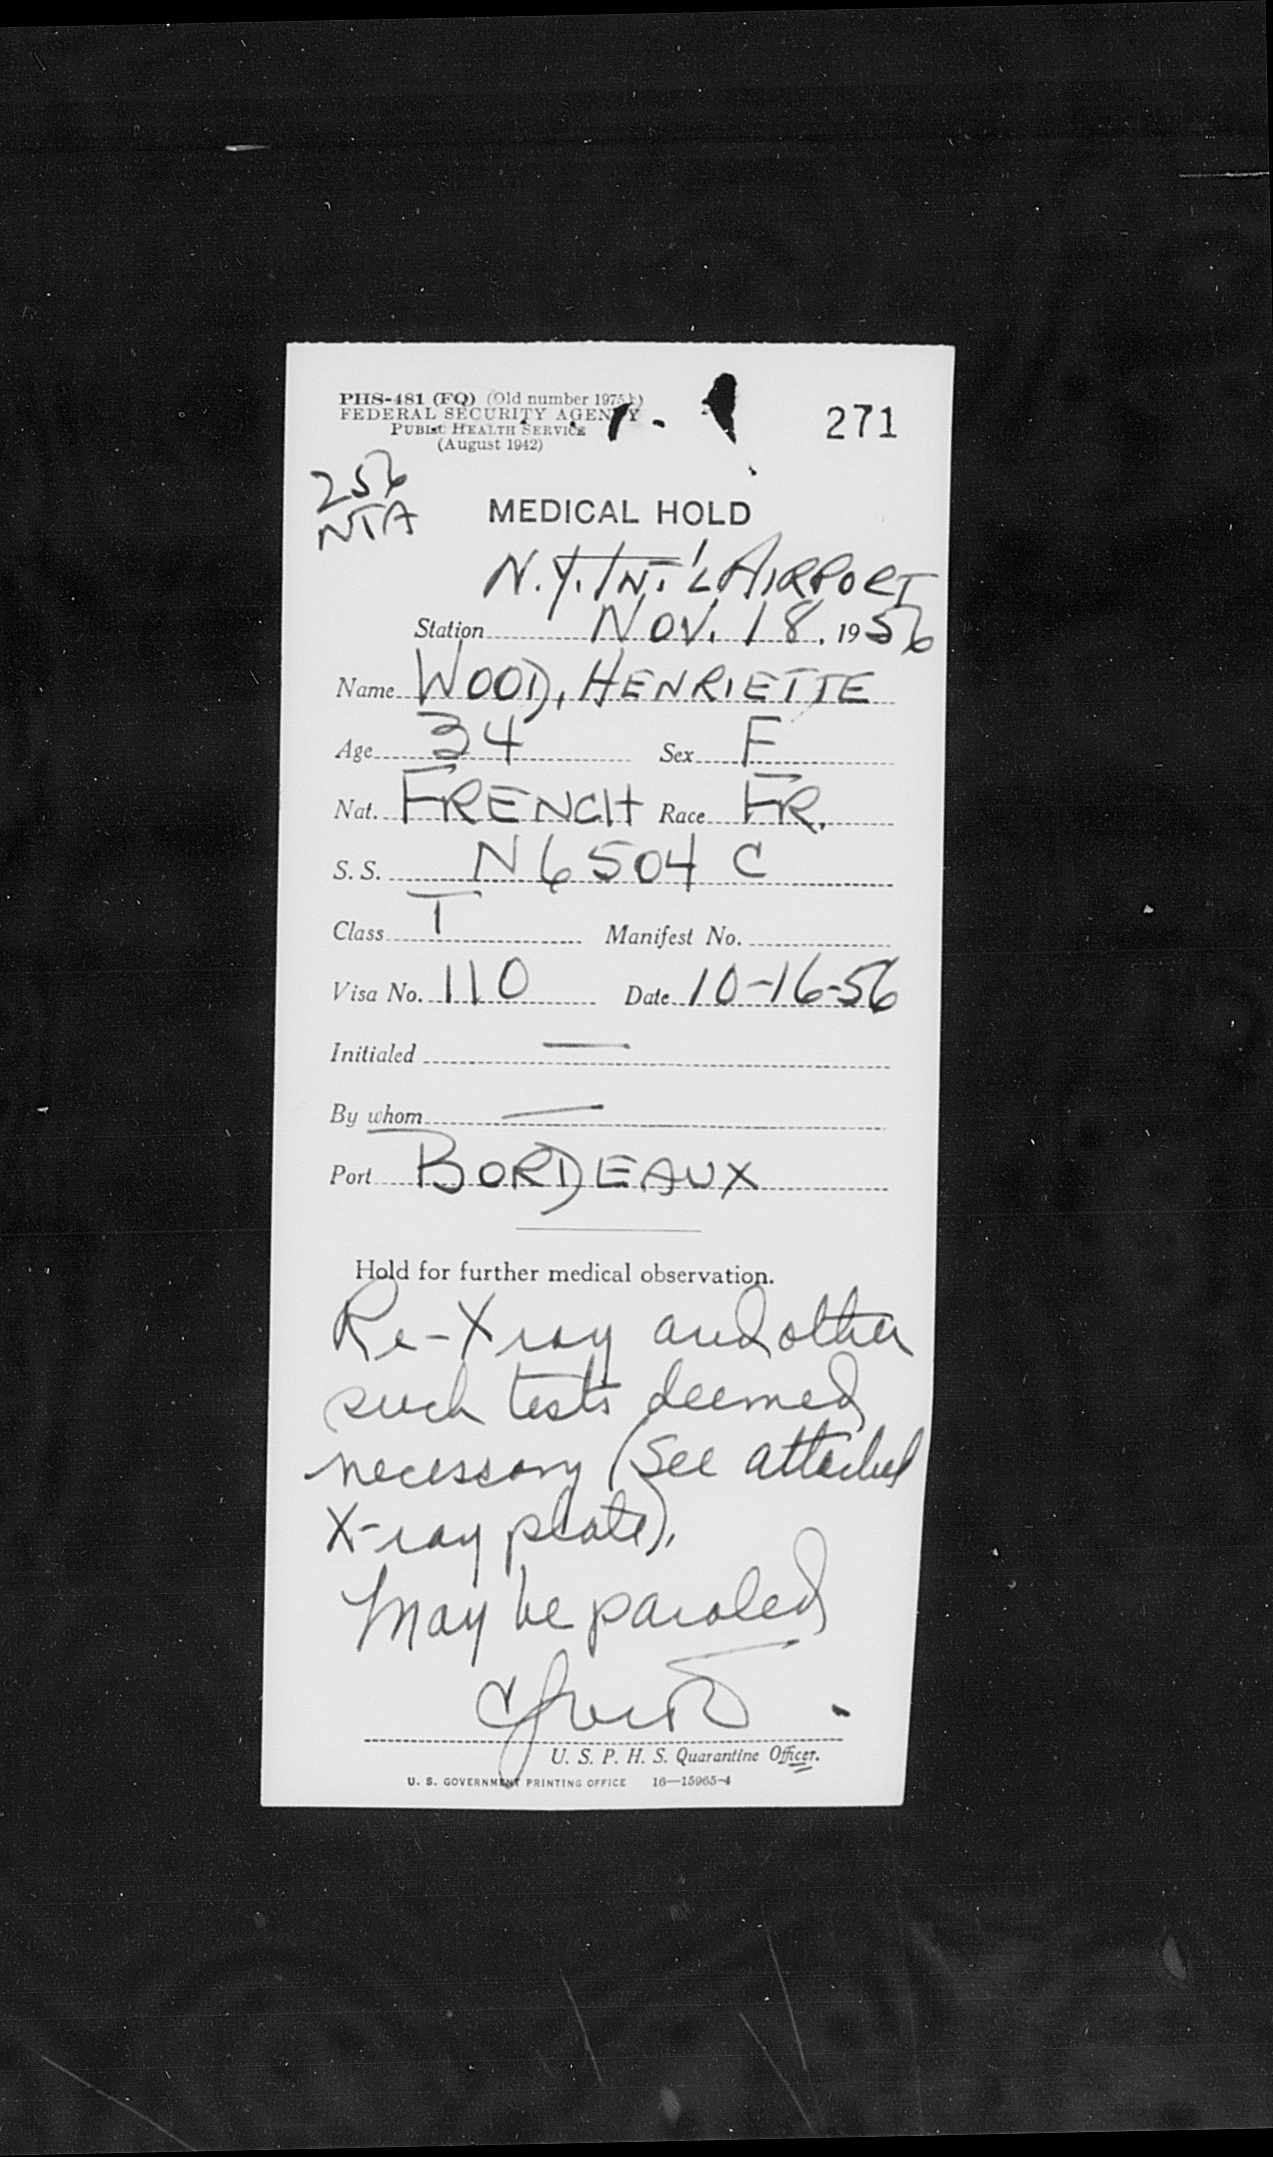 PHS-481 (FQ) (Old number 1975b)
FEDERAL SECURITY AGENCY
PUBLIC HEALTH SERVICE
(August 1942)
271
256
NIA
MEDICAL HOLD
N.Y. INT'L AIRPORT
Station NOV. 18, 1956
Name WOOD, HENRIETTE
Age 34 Sex F
Nat. FRENCH Race FR.
S. S. N6504 C
Class T Manifest No.
Visa No. 110 Date 10-16-56
Initialed —
By whom —
Port BORDEAUX
Hold for further medical observation.
Re-Xray and other
such tests deemed
necessary (See attached
X-ray plate).
May be paroled
U. S. P. H. S. Quarantine Officer.
U. S. GOVERNMENT PRINTING OFFICE 16—15965-4